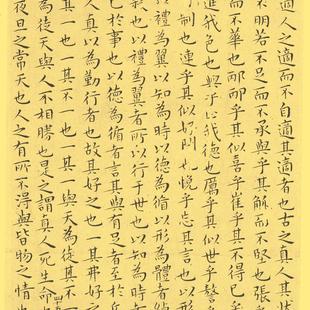 適人之適而不自適其適者也古之真人其狀
不朋若不足而不承與乎其觚而不堅也張乎
而不華也邴邴乎其似喜乎崔乎其不得已乎
進我色也與乎止我德也厲乎其似世乎謷乎
制也連乎其似好閉也悗乎忘其言也
以禮為翼以知為時以德為循以刑為體者綽
也以禮為翼者所以行于世也以知為時者
已於事也以德為循者言其與有足者至於丘
人真以為勤行者也故其好之也一其弗好之
其一也一其不一也一其一與天為徒其不一
為徒天與人不相勝也是之謂真人死生命也
夜旦之常天也人之有所不得與皆物之情也